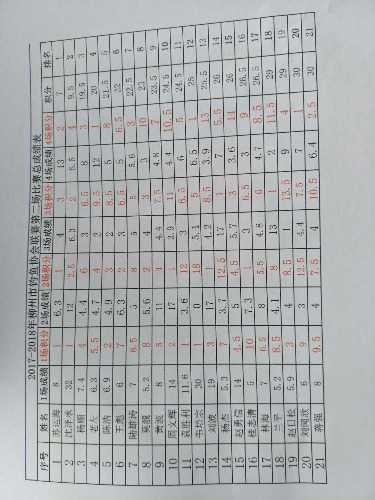 2017-2018年柳州市钓鱼协会联赛第二场比赛总成绩表
序号 姓名 1场成绩 1场积分 2场成绩 2场积分 3场成绩 3场积分 4场成绩 4场积分 积分 排名
1 苏运海 8 1 6.3 1 4 3 13 2 7 1
2 沈泽水 32 1 12 2.5 6.3 2 6.5 4 9.5 2
3 杨顺 7.4 4 4.4 6 3 6.5 8 3 19.5 3
4 老左 6.3 5.5 4.7 4 2 9.5 12 1 20 4
5 陈浩 6.9 2 4.9 3 2 8.5 5 8 21.5 5
6 王彪 6 7 6.3 2 3 6.5 5 6.5 22 6
7 陆雄涛 7 6.5 8 5 5.6 3 22.5 7
8 莫靓 5.2 8 5.6 2 4 3 3 10 23 8
9 黄波 8 11 4 4.4 7.5 4.8 7 23.5 9
10 周文辉 14 2 17 1 2.9 11 4.4 10.5 24.5 10
11 袁胜利 11.6 1 3.6 12 3 6.5 6 5 24.5 11
12 韦培宗 30 1 0 16 5.1 5 6.5 1 25 12
13 刘波 19 3 17 1 4.2 8.5 3.9 13 25.5 13
14 杨杰 5.3 7 3.7 12.5 17 1 7 5.5 26 14
15 赵勇信 14 4.5 5 4.5 5.7 3 3.6 14 26 15
16 桂志清 5 10 7.3 1 3 6.5 3 9 26.5 16
17 林海 7 6.5 5.5 4.8 6 4.7 8.5 26.5 17
18 兰平 5.2 8.5 4.1 8 13 1 2 11.5 29 18
19 赵日松 5.9 3 4 8.5 1 13.5 9 4 29 19
20 刘同欢 6 9 3 12.5 4.4 7.5 7 1 30 20
21 蒋强 8 9.5 4 7.5 4 10.5 6.4 2.5 30 21